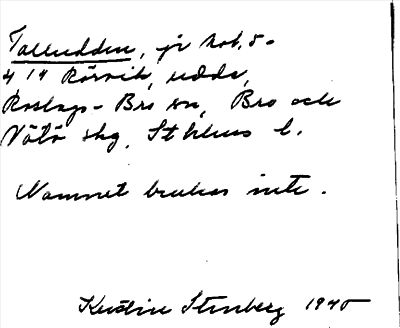 Talludden, jr kob. 5-
4 14 Rörvik, udde,
Roslags-Bro sn, Bro och
Vätö skg, Sthlms l.
Namnet brukas inte.
Kerstin Stenberg 1940